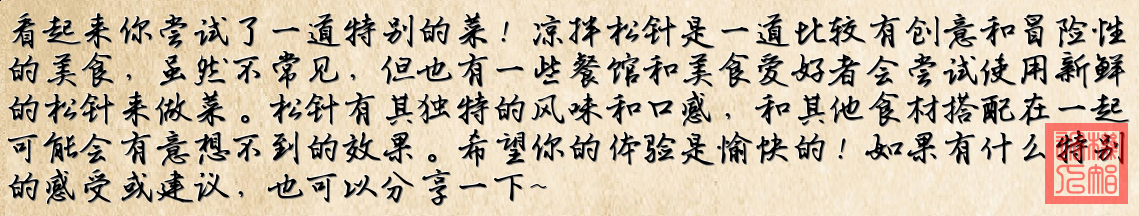 看起来你尝试了一道特别的菜！凉拌松针是一道比较有创意和冒险性
的美食，虽然不常见，但也有一些餐馆和美食爱好者会尝试使用新鲜
的松针来做菜。松针有其独特的风味和口感，和其他食材搭配在一起
可能会有意想不到的效果。希望你的体验是愉快的！如果有什么特别
的感受或建议，也可以分享一下~